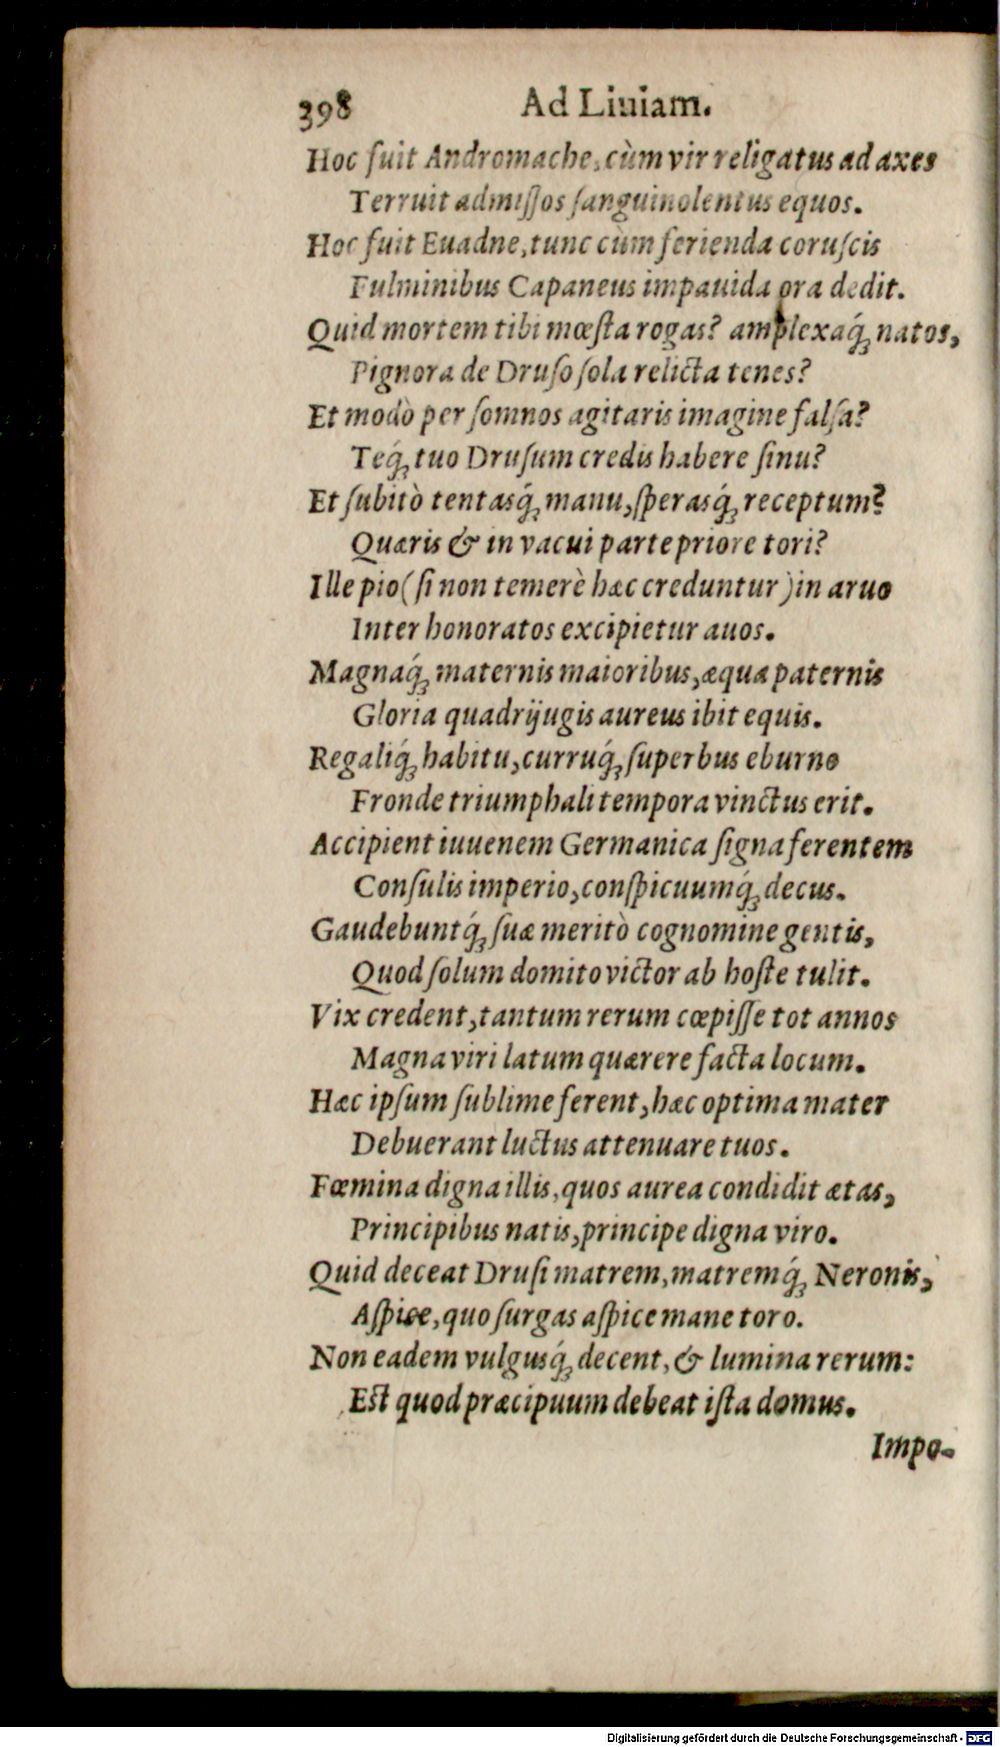 398 Ad Liuiam.
Hoc fuit Andromache, cùm vir religatus ad axes
Terruit admiſſos ſanguinolentus equos.
Hoc fuit Euadne, tunc cùm ferienda coruſcis
Fulminibus Capaneus impauida ora dedit.
Quid mortem tibi mœſta rogas? amplexaq́; natos,
Pignora de Druſo ſola relicta tenes?
Et modò per ſomnos agitaris imagine falſa?
Teq́; tuo Druſum credis habere ſinu?
Et ſubitò tentasq́; manu, ſperasq́; receptum?
Quæris & in vacui parte priore tori?
Ille pio (ſi non temerè hæc creduntur) in aruo
Inter honoratos excipietur auos.
Magnaq́; maternis maioribus, æqua paternis
Gloria quadrijugis aureus ibit equis.
Regaliq́; habitu, curruq́; ſuperbus eburno
Fronde triumphali tempora vinctus erit.
Accipient iuuenem Germanica ſigna ferentem
Conſulis imperio, conſpicuumq́; decus.
Gaudebuntq́; ſuæ meritò cognomine gentis,
Quod ſolum domito victor ab hoſte tulit.
Vix credent, tantum rerum cœpiſſe tot annos
Magna viri latum quærere facta locum.
Hæc ipſum ſublime ferent, hæc optima mater
Debuerant luctus attenuare tuos.
Fœmina digna illis, quos aurea condidit ætas,
Principibus natis, principe digna viro.
Quid deceat Druſi matrem, matremq́; Neronis,
Aſpice, quo ſurgas aſpice mane toro.
Non eadem vulgusq́; decent, & lumina rerum:
Eſt quod præcipuum debeat iſta domus.
Impo-
Digitalisierung gefördert durch die Deutsche Forschungsgemeinschaft - DFG